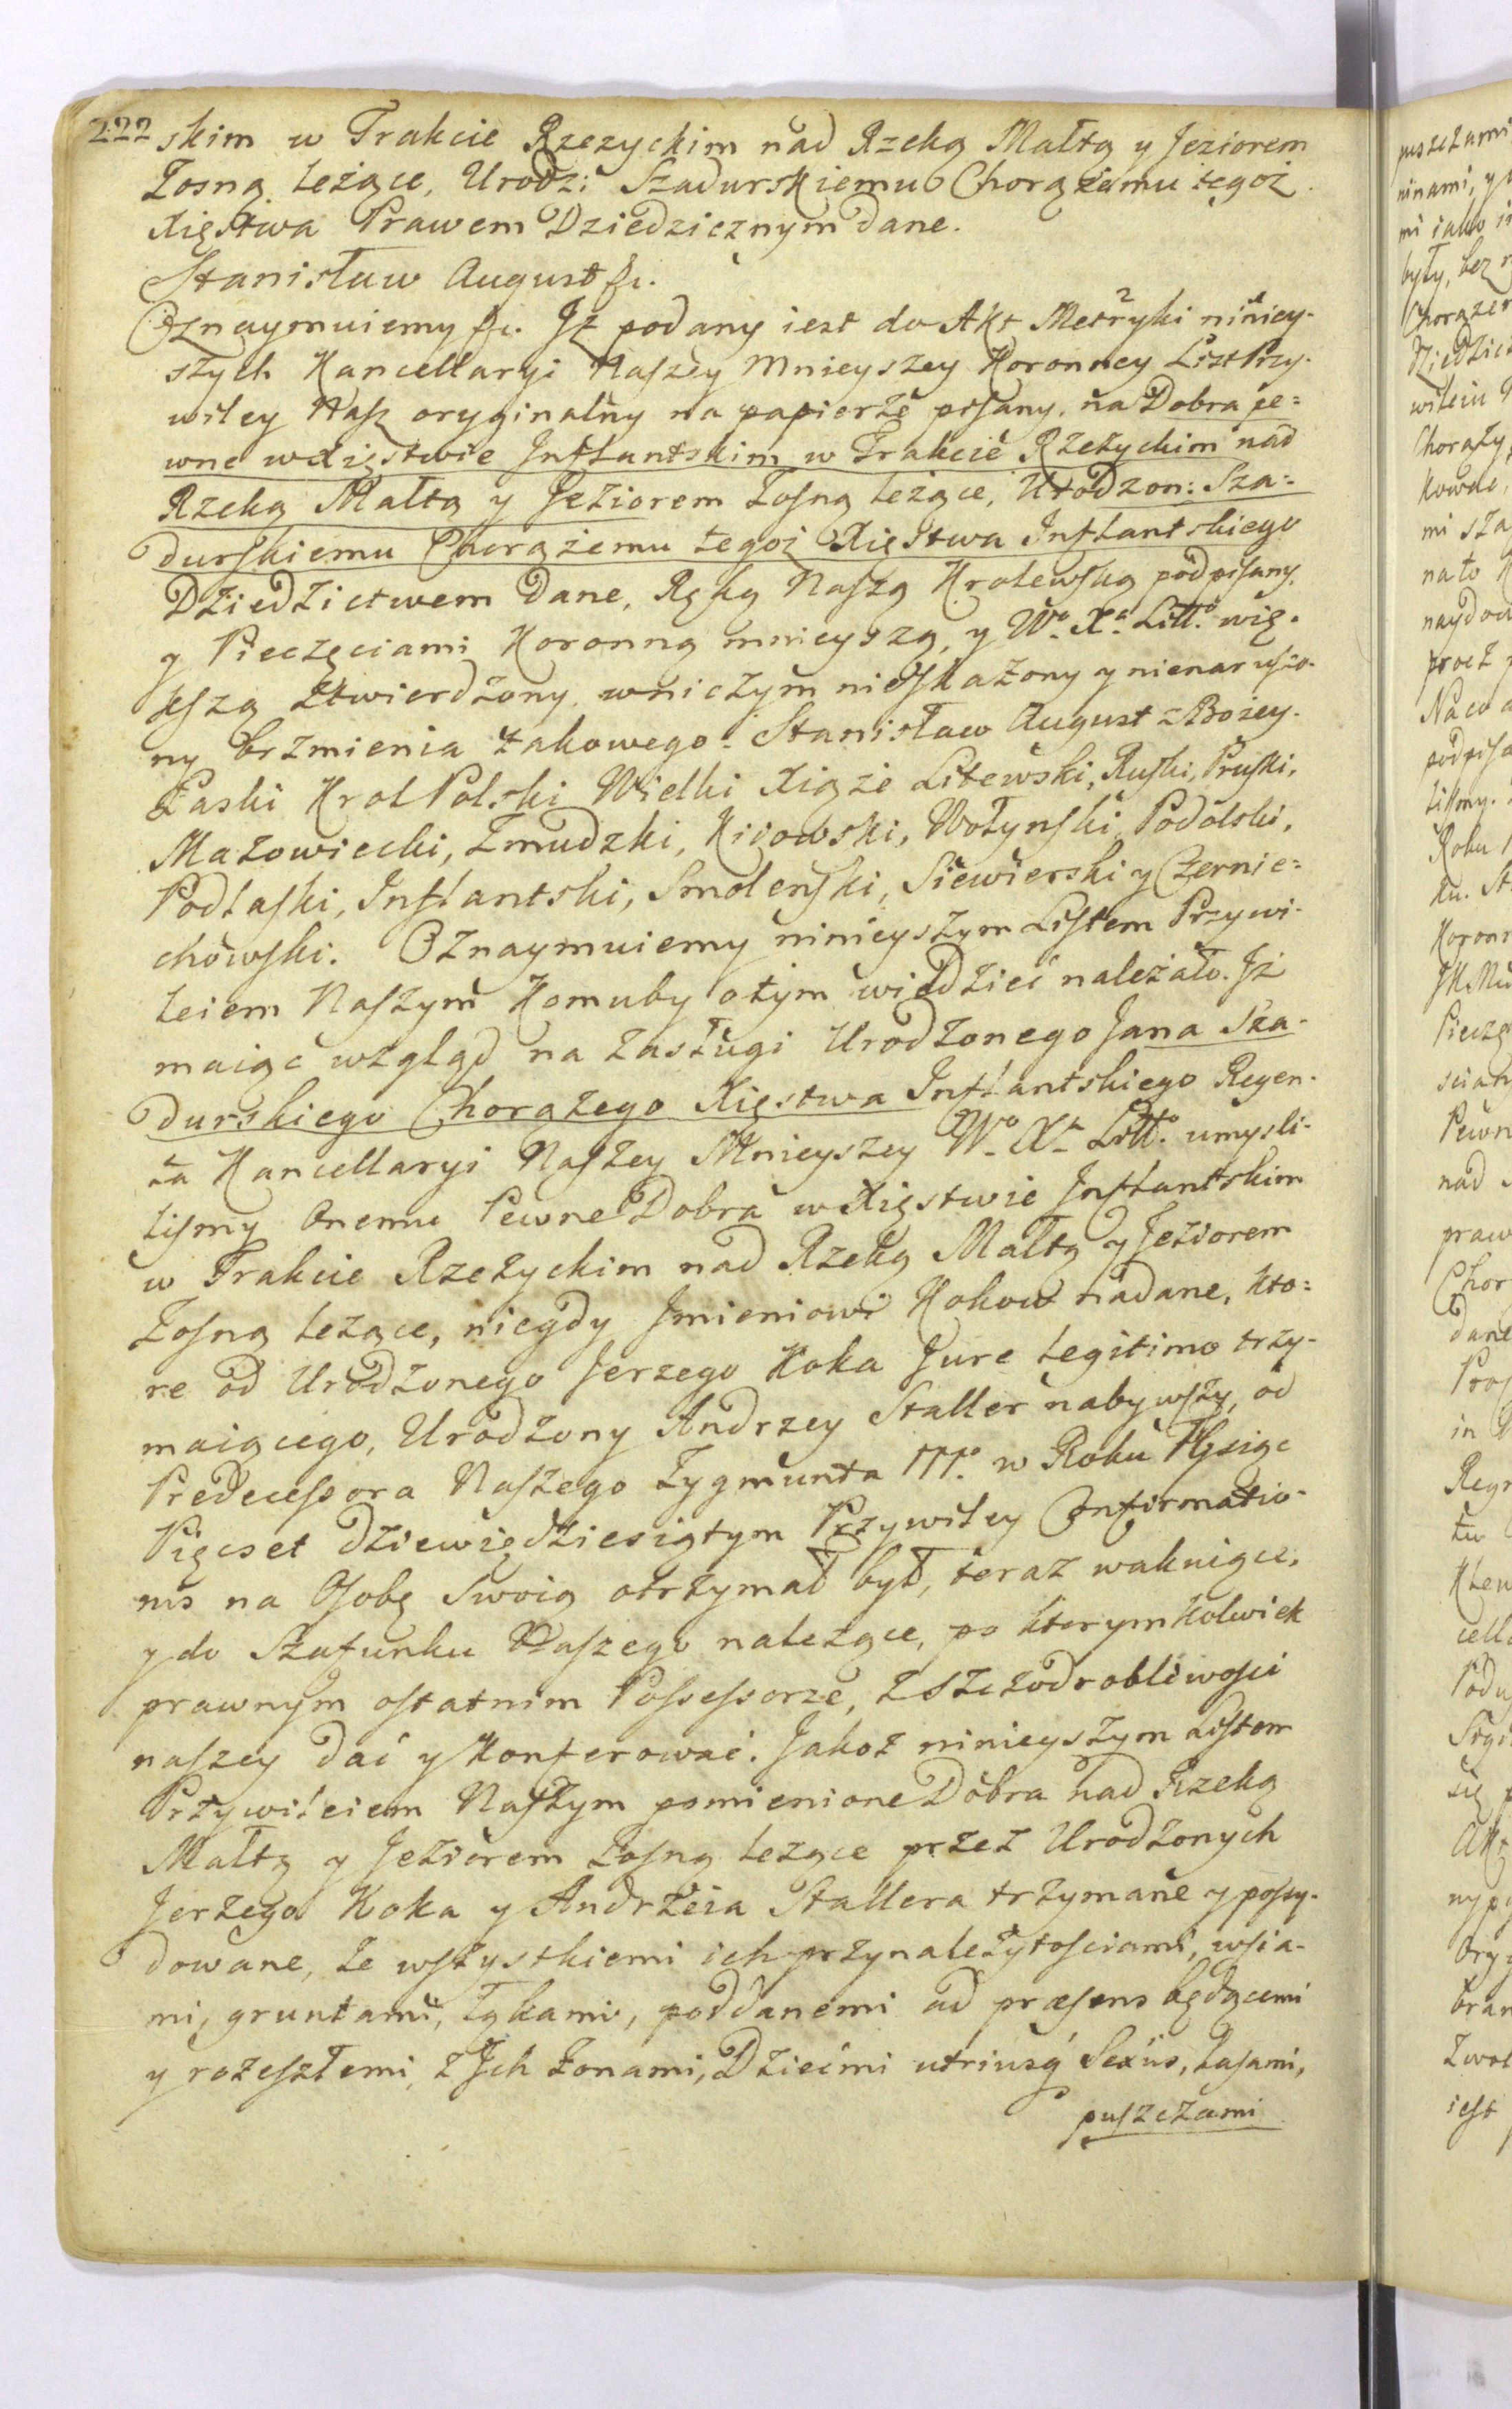 222 skim w Trakcie Rzezyckim nad Rzeką Małtą y Jeziorem
Łosną leżące, Urodz: Szadurskiemu Chorążemu tegoż
Xięstwa Prawem Dziedzicznym dane.
Stanisław August &c.
Oznaymuiemy &c. Iż podany iest do Akt Metryki niniey-
szych Kancellaryi Naszey Mnieyszey Koronney List Przy-
wiley Nasz oryginalny na papierze pisany, na Dobra pe=
wne w Xięstwie Inflantskim w Trakcie Rzeżyckim nad
Rzeką Małtą y Jeziorem Łosną leżące, Urodzon: Sza=
durskiemu Chorążemu tegoż Xięstwa Inflantskiego
Dziedzictwem dane, Ręką Naszą Krolewską podpisany,
y Pieczęciami Koronną mnieyszą, y Wo. Xa. Litto. wię-
kszą ztwierdzony, w niczym nieskażony y nienaruszo-
ny brzmienia takowego: Stanisław August z Bożey
Łaski Krol Polski Wielki Xiąże Litewski, Ruski, Pruski,
Mazowiecki, Zmudzki, Kiiowski, Wołynski, Podolski,
Podlaski, Inflantski, Smolenski, Siewierski y Czernie=
chowski. Oznaymuiemy ninieyszym Listem Przywi-
leiem Naszym Komuby o tym wiedzieć należało. Iż
maiąc wzgląd na zasługi Urodzonego Jana Sza-
durskiego Chorążego Xięstwa Inflantskiego Regen-
ta Kancellaryi Naszey Mnieyszey Wo. Xa. Litto. umysli-
lismy Onemu Pewne Dobra w Xięstwie Inflantskim
w Trakcie Rzeżyckim nad Rzeką Małtą y Jeziorem
Łosną leżące, niegdy Imieniowi Kokow nadane, kto=
re od Urodzonego Jerzego Koka Jure legitimo trzy-
maiącego, Urodzony Andrzey Staller nabywszy, od
Predecessora Naszego Zygmunta IIIo. w Roku Tysiąc
Pięcset dziewiędziesiątym Przywiley Confirmatio-
nis na Osobę Swoią otrzymał był, teraz wakuiące,
y do Szafunku Naszego należące, po ktorymkolwiek
prawnym ostatnim Possessorze, z szczodrobliwosci
naszey dać y Konferować. Jakoż ninieyszym Listem
Przywileiem Naszym pomienione Dobra nad Rzeką
Małtą y Jeziorem Łosną leżące przez Urodzonych
Jerzego Koka y Andrzeia Stallera trzymane y possy-
dowane, ze wszystkiemi ich przynależytosciami, wsia-
mi, gruntami, łąkami, poddanemi ad præsens będącemi
y rozeszłemi, z Ich Żonami, Dziećmi utriusq́ Sexus, Lasami,
puszczami